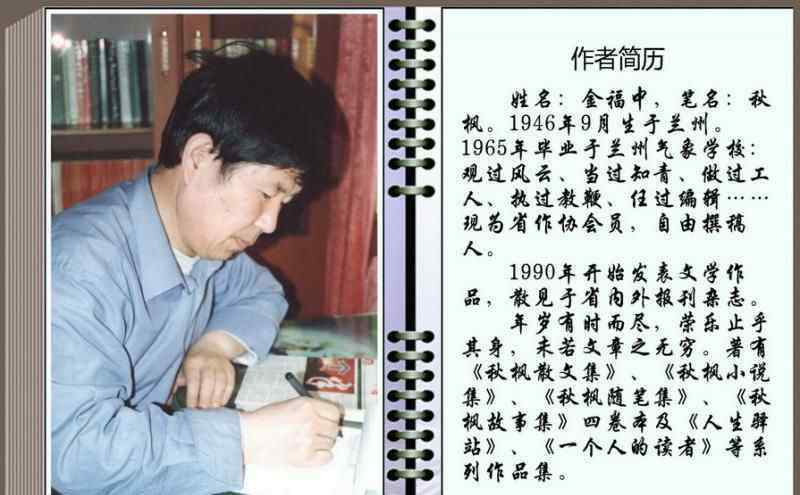 作者简历
姓名：金福中，笔名：秋
枫。1946年9月生于兰州。
1965年毕业于兰州气象学校：
观过风云、当过知青、做过工
人、执过教鞭、任过编辑……
现为省作协会员，自由撰稿
人。
1990年开始发表文学作
品，散见于省内外报刊杂志。
年岁有时而尽，荣乐止乎
其身，未若文章之无穷。著有
《秋枫散文集》、《秋枫小说
集》、《秋枫随笔集》、《秋
枫故事集》四卷本及《人生驿
站》、《一个人的读者》等系
列作品集。